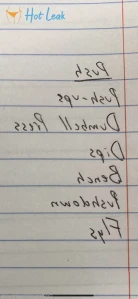 Hot Leak
Push
Push-ups
Dumbell Press
Dips
Bench
Pushdown
Flys